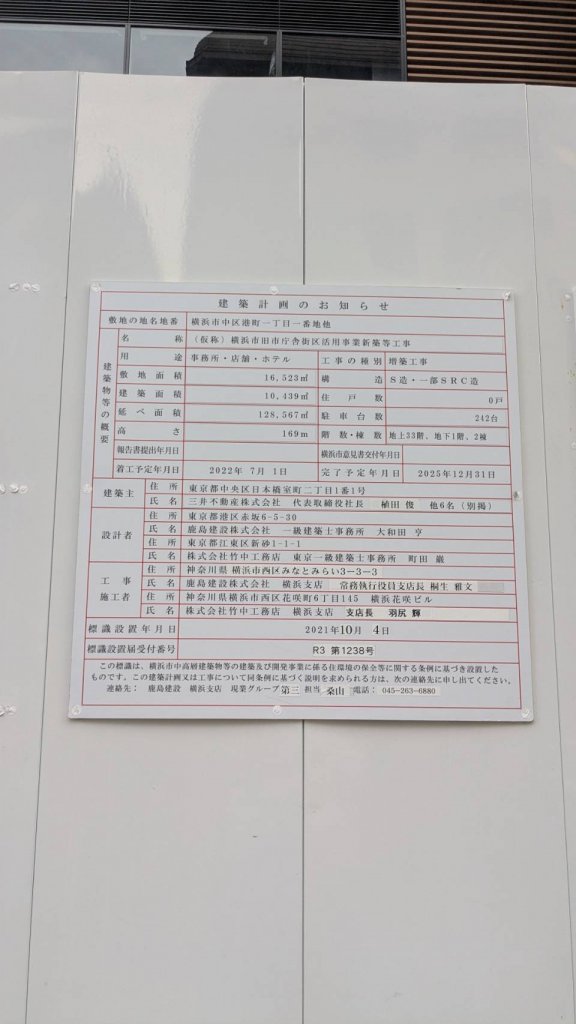 建築計画のお知らせ
敷地の地名地番 横浜市中区港町一丁目一番地他
建築物等の概要
名称 (仮称)横浜市旧市庁舎街区活用事業新築等工事
用途 事務所・店舗・ホテル 工事の種別 増築工事
敷地面積 16,523㎡ 構造 S造・一部SRC造
建築面積 10,439㎡ 住戸数 0戸
延べ面積 128,567㎡ 駐車台数 242台
高さ 169m 階数・棟数 地上33階、地下1階、2棟
報告書提出年月日 横浜市意見書交付年月日
着工予定年月日 2022年 7月 1日 完了予定年月日 2025年12月31日
建築主 住所 東京都中央区日本橋室町二丁目1番1号
氏名 三井不動産株式会社 代表取締役社長 植田 俊 他6名(別掲)
設計者 住所 東京都港区赤坂6-5-30
氏名 鹿島建設株式会社 一級建築士事務所 大和田 亨
住所 東京都江東区新砂1-1-1
氏名 株式会社竹中工務店 東京一級建築士事務所 町田 巌
工事施工者 住所 神奈川県 横浜市西区みなとみらい3-3-3
氏名 鹿島建設株式会社 横浜支店 常務執行役員支店長 桐生 雅文
住所 神奈川県横浜市西区花咲町6丁目145 横浜花咲ビル
氏名 株式会社竹中工務店 横浜支店 支店長 羽尻 輝
標識設置年月日 2021年10月 4日
標識設置届受付番号 R3 第1238号
この標識は、横浜市中高層建築物等の建築及び開発事業に係る住環境の保全等に関する条例に基づき設置した
ものです。この建築計画又は工事について同条例に基づく説明を求められる方は、次の連絡先に申し出てください。
連絡先: 鹿島建設 横浜支店 現業グループ 第三 担当 桑山 電話: 045-263-6880